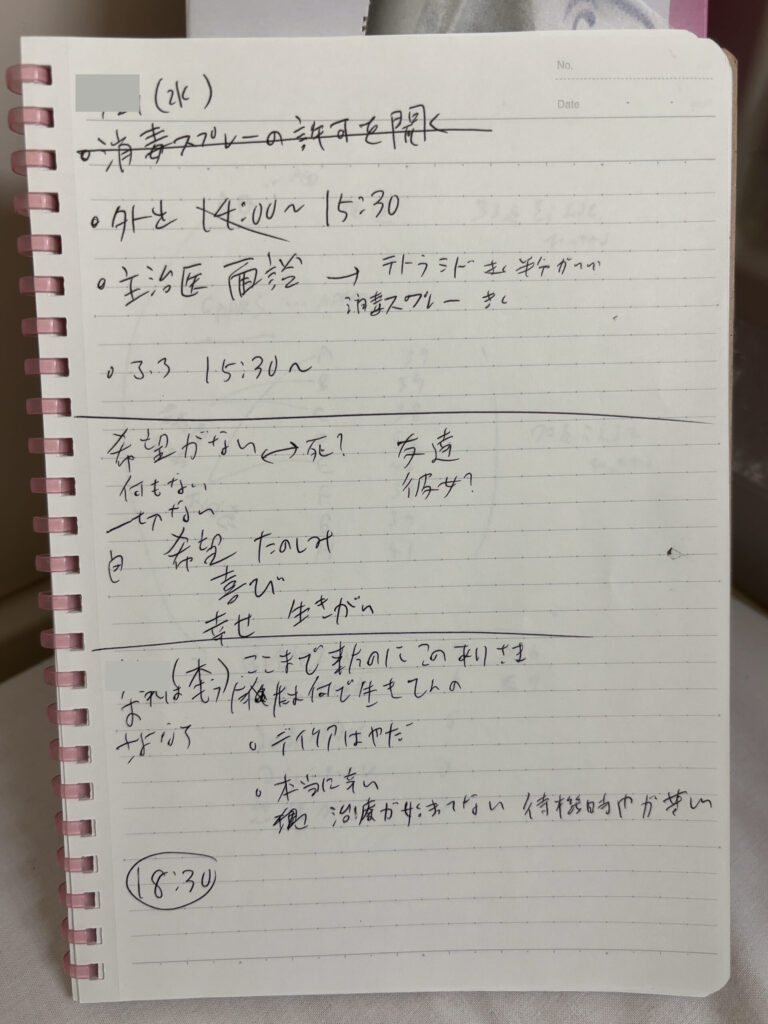 No.
Date
(水)
・消毒スプレーの許可を聞く
・外出 14:00〜 15:30
・主治医 面談 → テトラミド 半分
消毒スプレー きく
・3.3 15:30〜
希望がない ←→ 死? 友達
何もない 彼女?
一切ない
希望 たのしみ
喜び
幸せ 生きがい
(木) ここまで来たのにこのありさま
おれはもう 何で生きてんの
さよなら ・デイケアはやだ
・本当に辛い
治療が始まってない 待機時 が苦しい
18:30